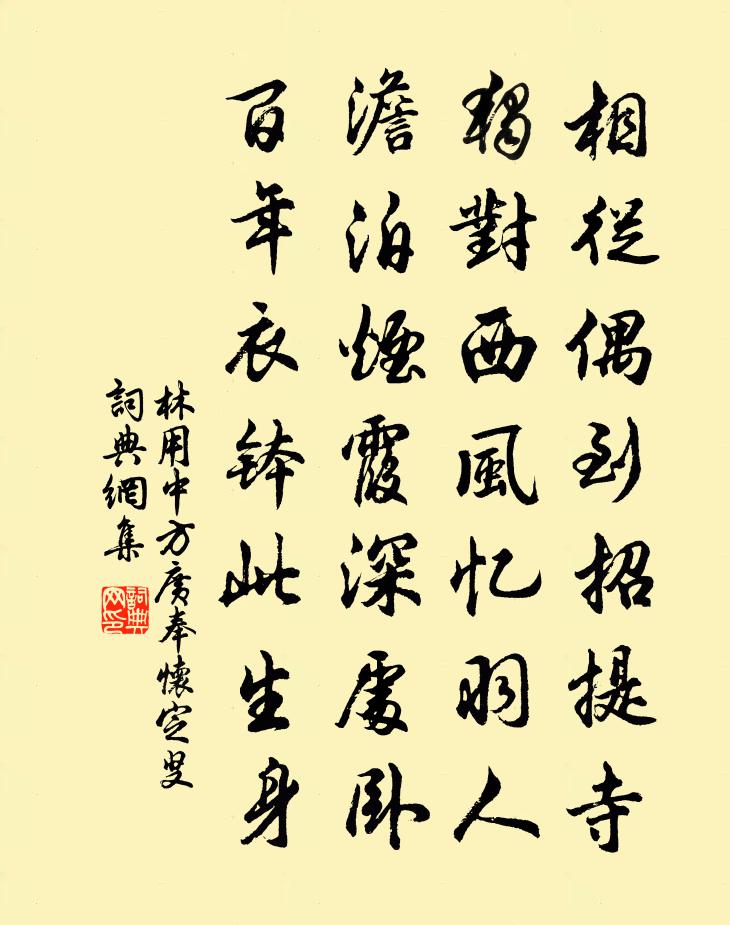 相從偶到招提寺
獨對西風忆羽人
澹泊煙霞深處臥
百年衣鉢此生身
林用中方廣奉懷定叟
詞典網集
詞典网印